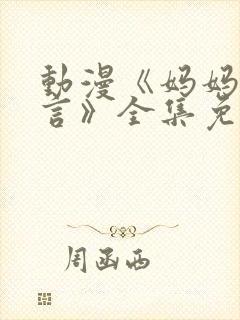 動漫《妈妈
言》全集免
周函西